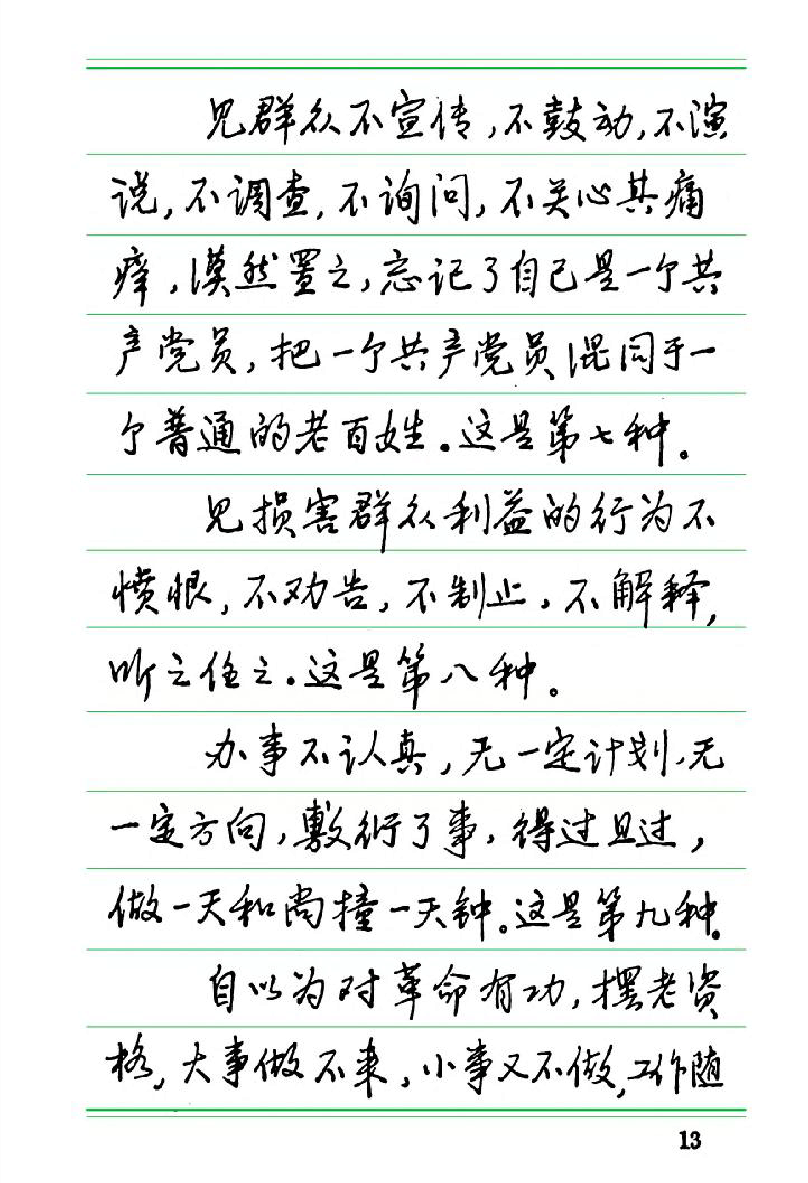 见群众不宣传,不鼓动,不演
说,不调查,不询问,不关心其痛
痒,漠然置之,忘记了自己是一个共
产党员,把一个共产党员混同于一
个普通的老百姓。这是第七种。
见损害群众利益的行为不
愤恨,不劝告,不制止,不解释,
听之任之。这是第八种。
办事不认真,无一定计划,无
一定方向,敷衍了事,得过且过,
做一天和尚撞一天钟。这是第九种。
自以为对革命有功,摆老资
格,大事做不来,小事又不做,工作随
13